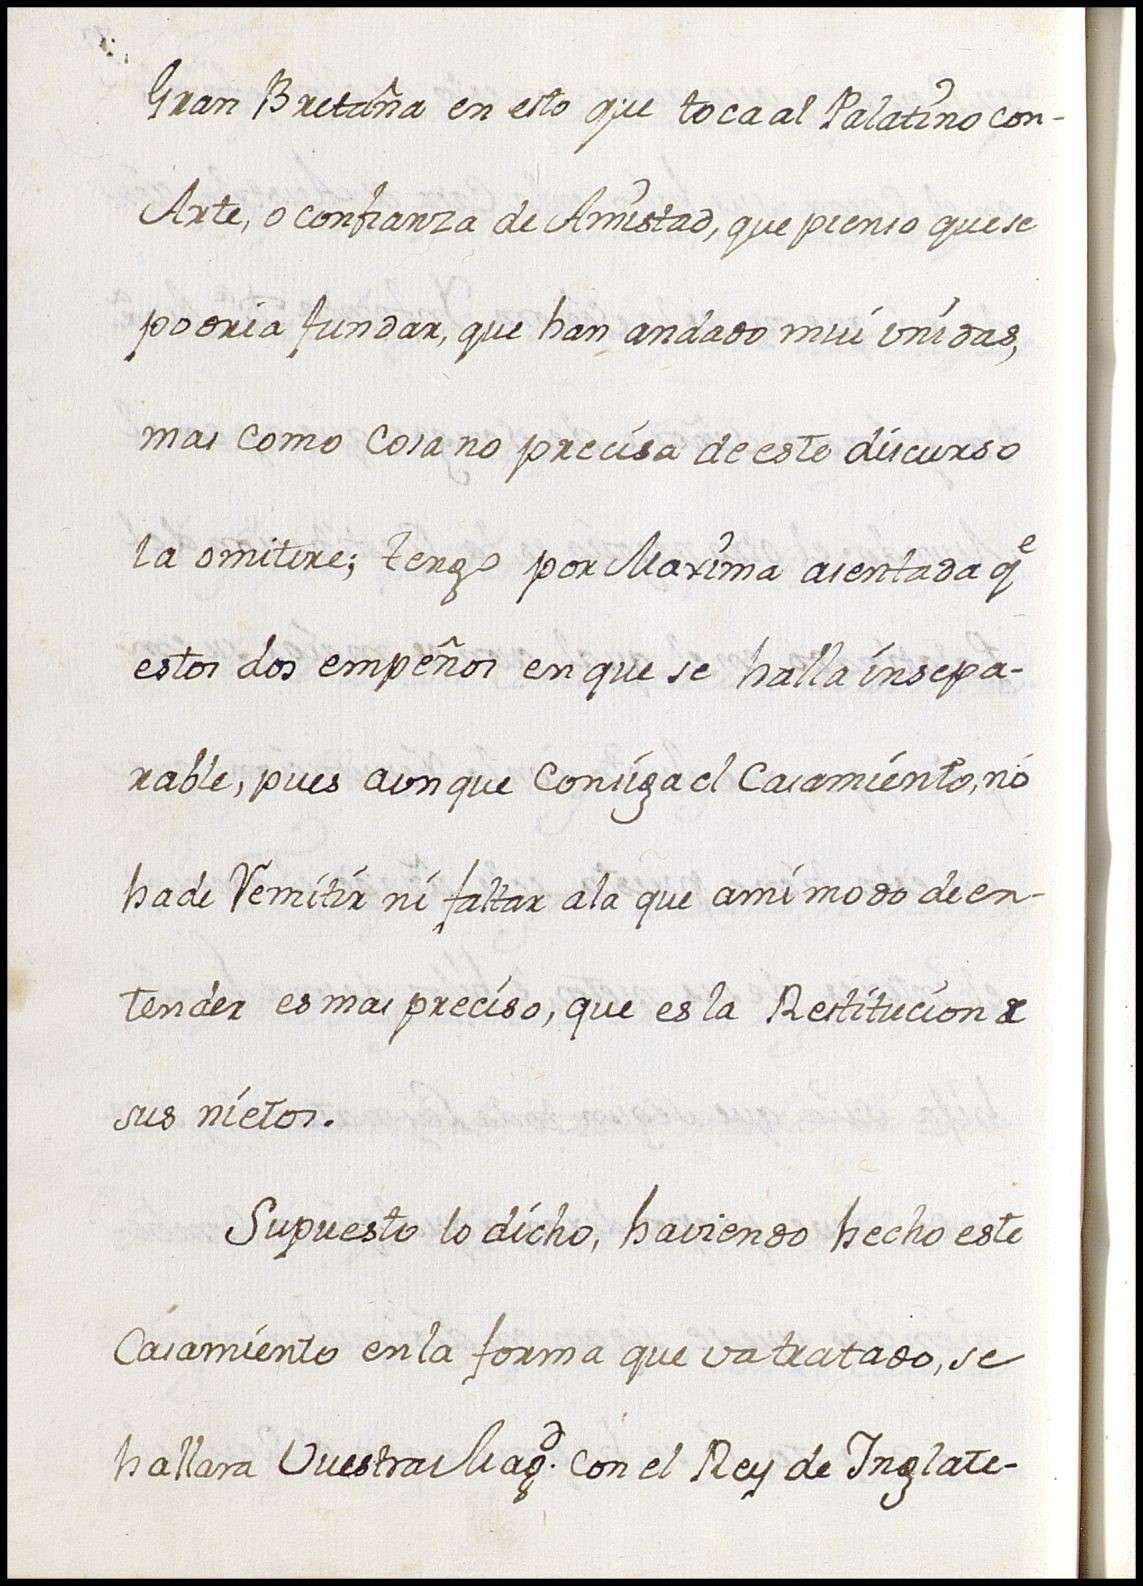 Gran Bretaña en esto que toca al Palatino con-
Arte, o confianza de Amistad, que pienso que se
podria fundar, que han andado mui vnidas,
mas como cosa no precisa de este discurso
la omitire; tengo por Maxima asentada q^e
estos dos empeños en que se halla insepa-
rable, pues aunque consiga el Casamiento, no
ha de Remitir ni faltar ala que ami modo de en-
tender es mas preciso, que es la Restitucion a
sus nietos.
Supuesto lo dicho, haviendo hecho este
Casamiento en la forma que va tratado, se
hallara Vuestra Mag^d. con el Rey de Inglate-